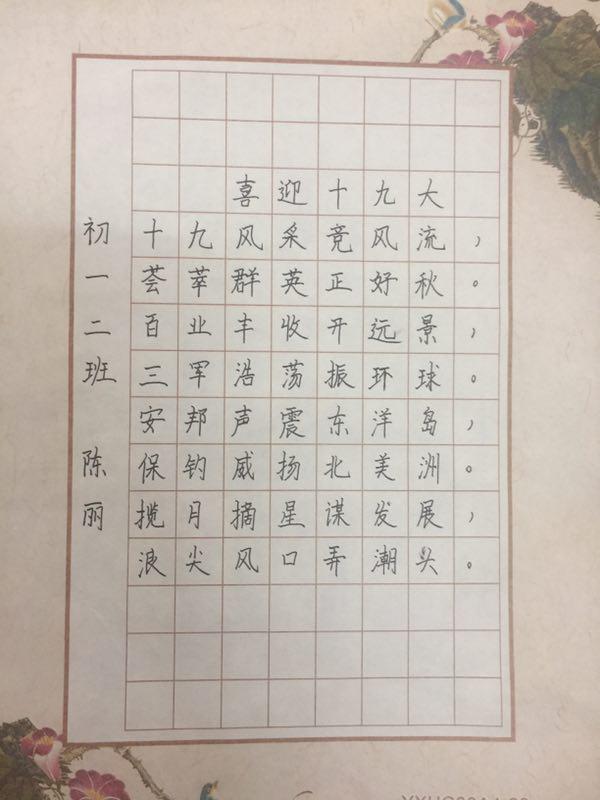 喜迎十九大
十九风采竞风流，
荟萃群英正好秋。
百业丰收开远景，
三军浩荡振环球。
安邦声震东洋岛，
保钓威扬北美洲。
揽月摘星谋发展，
浪尖风口弄潮头。
初一二班 陈丽